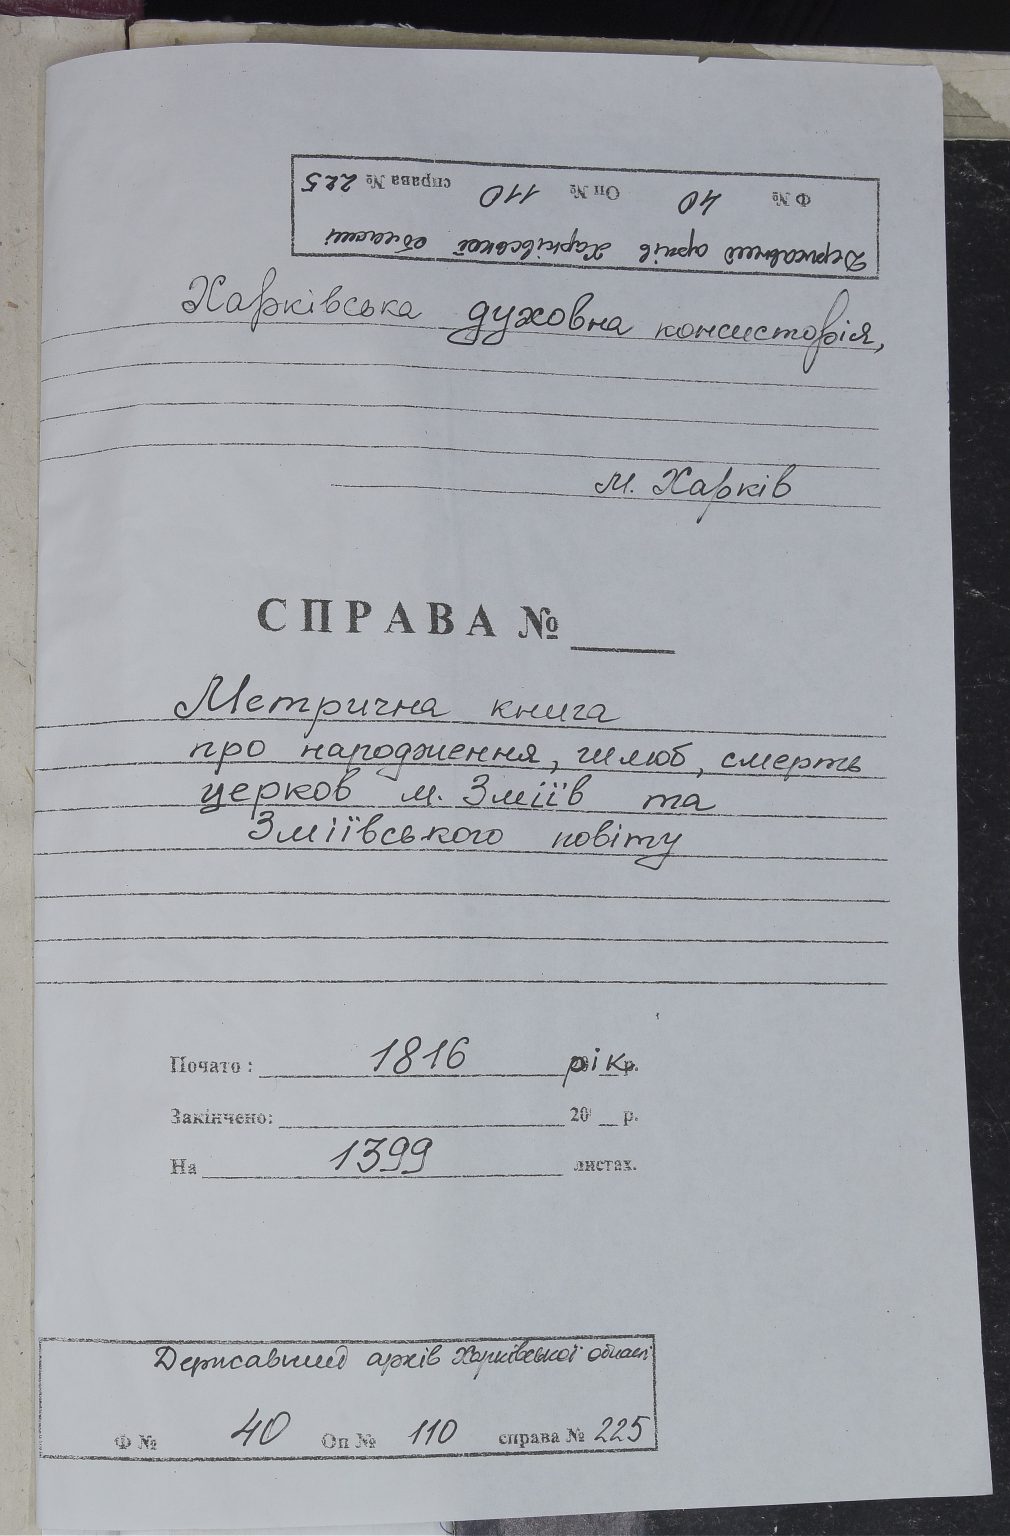 Ф № 40 Оп № 110 справа № 225
Державний архів Харківської області
Харківська духовна консисторія,
м. Харків
СПРАВА №
Метрична книга
про народження, шлюб, смерть
церков м. Зміїв та
Зміївського повіту
Почато: 1816 рік р.
Закінчено: 20 р.
На 1399 листах.
Державний архів Харківської області
Ф № 40 Оп № 110 справа № 225